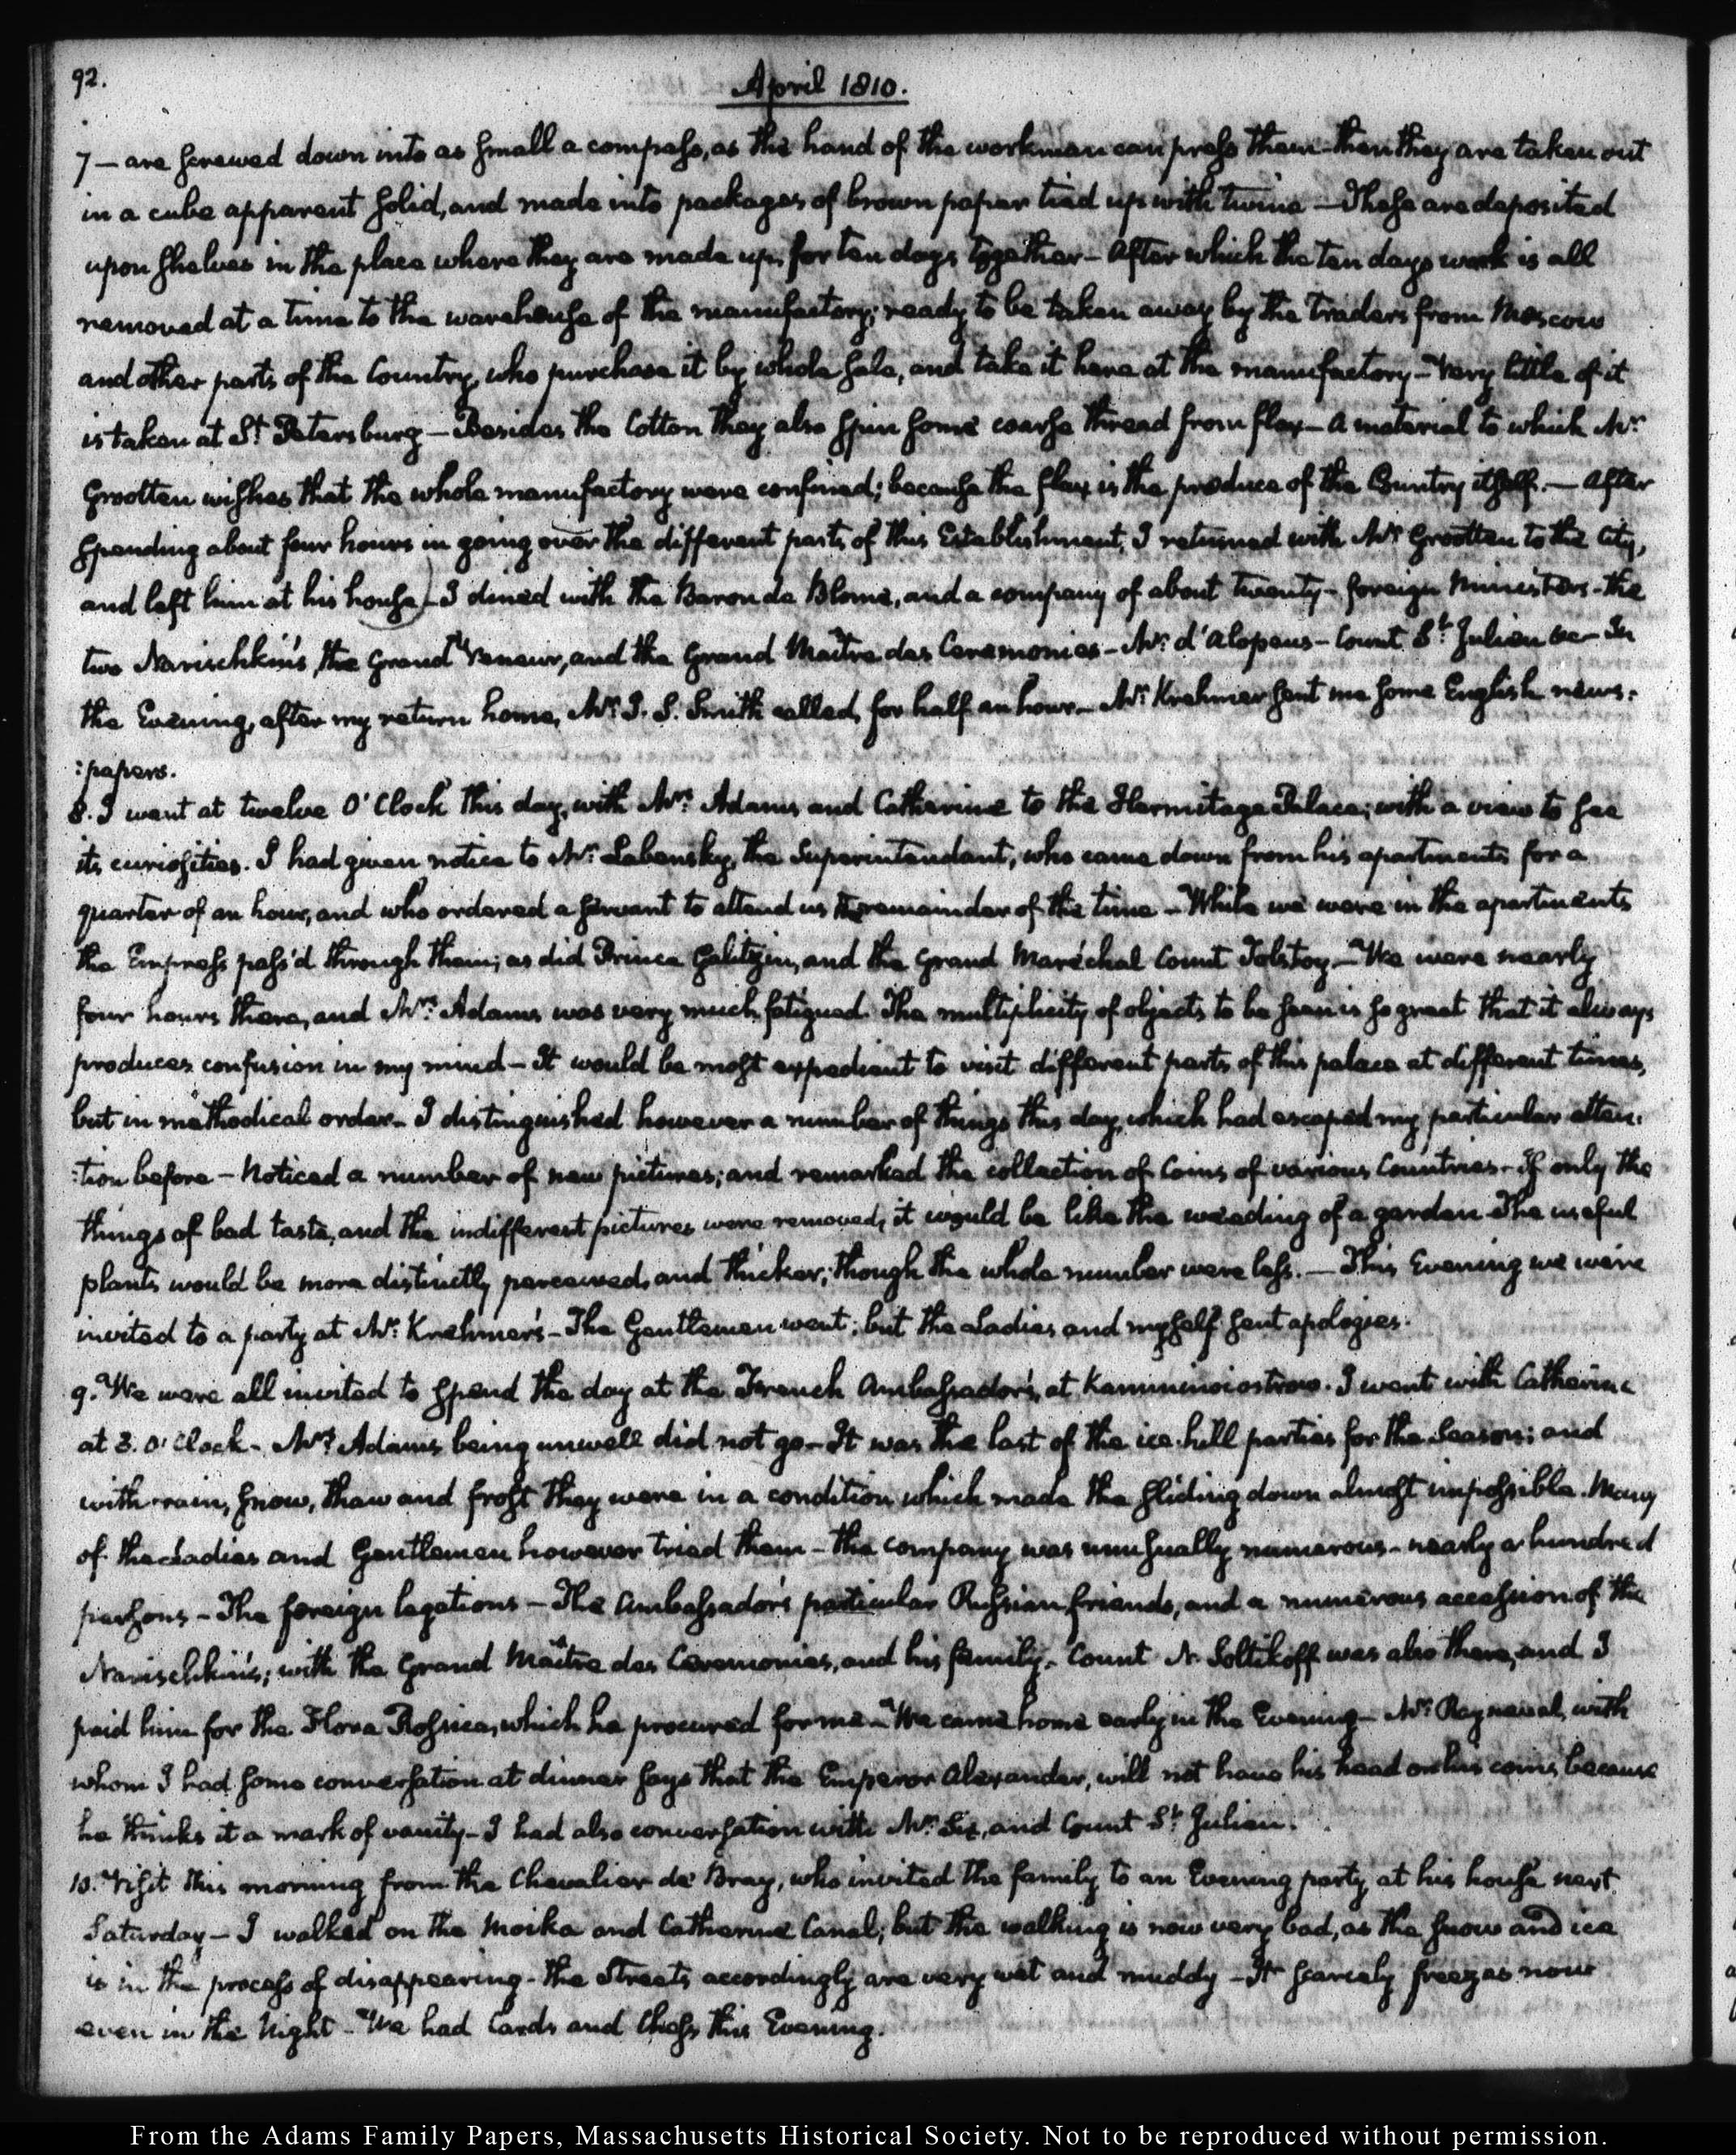 92.
April 1810.
7 — are screwed down into as small a compass, as the hand of the workman can press them - then they are taken out
in a cube apparent solid, and made into packages of brown paper tied up with twine — These are deposited
upon shelves in the place where they are made up, for ten days together - After which the ten days work is all
removed at a time to the warehouse of the manufactory; ready to be taken away by the traders from Moscow
and other parts of the Country, who purchase it by whole sale, and take it here at the manufactory - Very little of it
is taken at St. Petersburg — Besides the Cotton they also spin some coarse thread from flax — a material to which Mr.
Grootten wishes that the whole manufactory were confined; because the flax is the produce of the Country itself. — After
spending about four hours in going over the different parts of this Establishment, I returned with Mr. Grootten to the City,
and left him at his house - I dined with the Baron de Blome, and a company of about twenty - foreign Ministers - the
two Narischkin's, the Grand Veneur, and the Grand Maître des Ceremonies - Mr. d'Alopeus - Count St. Julien &c - In
the Evening, after my return home, Mr. J. S. Smith called, for half an hour - Mr. Krehmer sent me some English news:
:papers.
8. I went at twelve O'Clock this day, with Mrs. Adams and Catherine to the Hermitage Palace; with a view to see
its curiosities. I had given notice to Mr. Labensky, the Superintendant, who came down from his apartments for a
quarter of an hour, and who ordered a servant to attend us the remainder of the time - While we were in the apartments
the Empress pass'd through them; as did Prince Galitzin, and the Grand Maréchal Count Tolstoy - We were nearly
four hours there, and Mrs. Adams was very much fatigued. The multiplicity of objects to be seen is so great that it always
produces confusion in my mind - It would be most expedient to visit different parts of this palace at different times,
but in methodical order - I distinguished however a number of things this day, which had escaped my particular atten:
:tion before - Noticed a number of new pictures; and remarked the collection of Coins of various Countries - If only the
things of bad taste, and the indifferent pictures were removed, it would be like the weeding of a garden - The useful
plants would be more distinctly perceived, and thicker; though the whole number were less. — This Evening we were
invited to a party at Mr. Krehmer's - The Gentlemen went; but the Ladies and myself sent apologies.
9. We were all invited to spend the day at the French Ambassador's, at Kamminoiostrow. I went with Catherine
at 3. O'Clock - Mrs. Adams being unwell did not go - It was the last of the ice-hill parties for the Season; and
with rain, snow, thaw and frost they were in a condition which made the sliding down almost impossible. Many
of the Ladies and Gentlemen however tried them - the company was unusually numerous - nearly a hundred
persons - The foreign legations - The Ambassador's particular Russian friends, and a numerous accession of the
Narischkin's; with the Grand Maître des Ceremonies, and his family. Count N. Soltikoff was also there, and I
paid him for the Flora Rossica, which he procured for me - We came home early in the Evening - Mr. Rayneval, with
whom I had some conversation at dinner says that the Emperor Alexander, will not have his head on his coins, because
he thinks it a mark of vanity - I had also conversation with Mr. Six, and Count St. Julien.
10. Visit this morning from the Chevalier de Bray, who invited the family to an Evening party at his house next
Saturday - I walked on the Moika and Catherine Canal; but the walking is now very bad, as the snow and ice
is in the process of disappearing - the Streets accordingly are very wet and muddy - It scarcely freezes now
even in the Night - We had Cards and Chess this Evening.
From the Adams Family Papers, Massachusetts Historical Society. Not to be reproduced without permission.